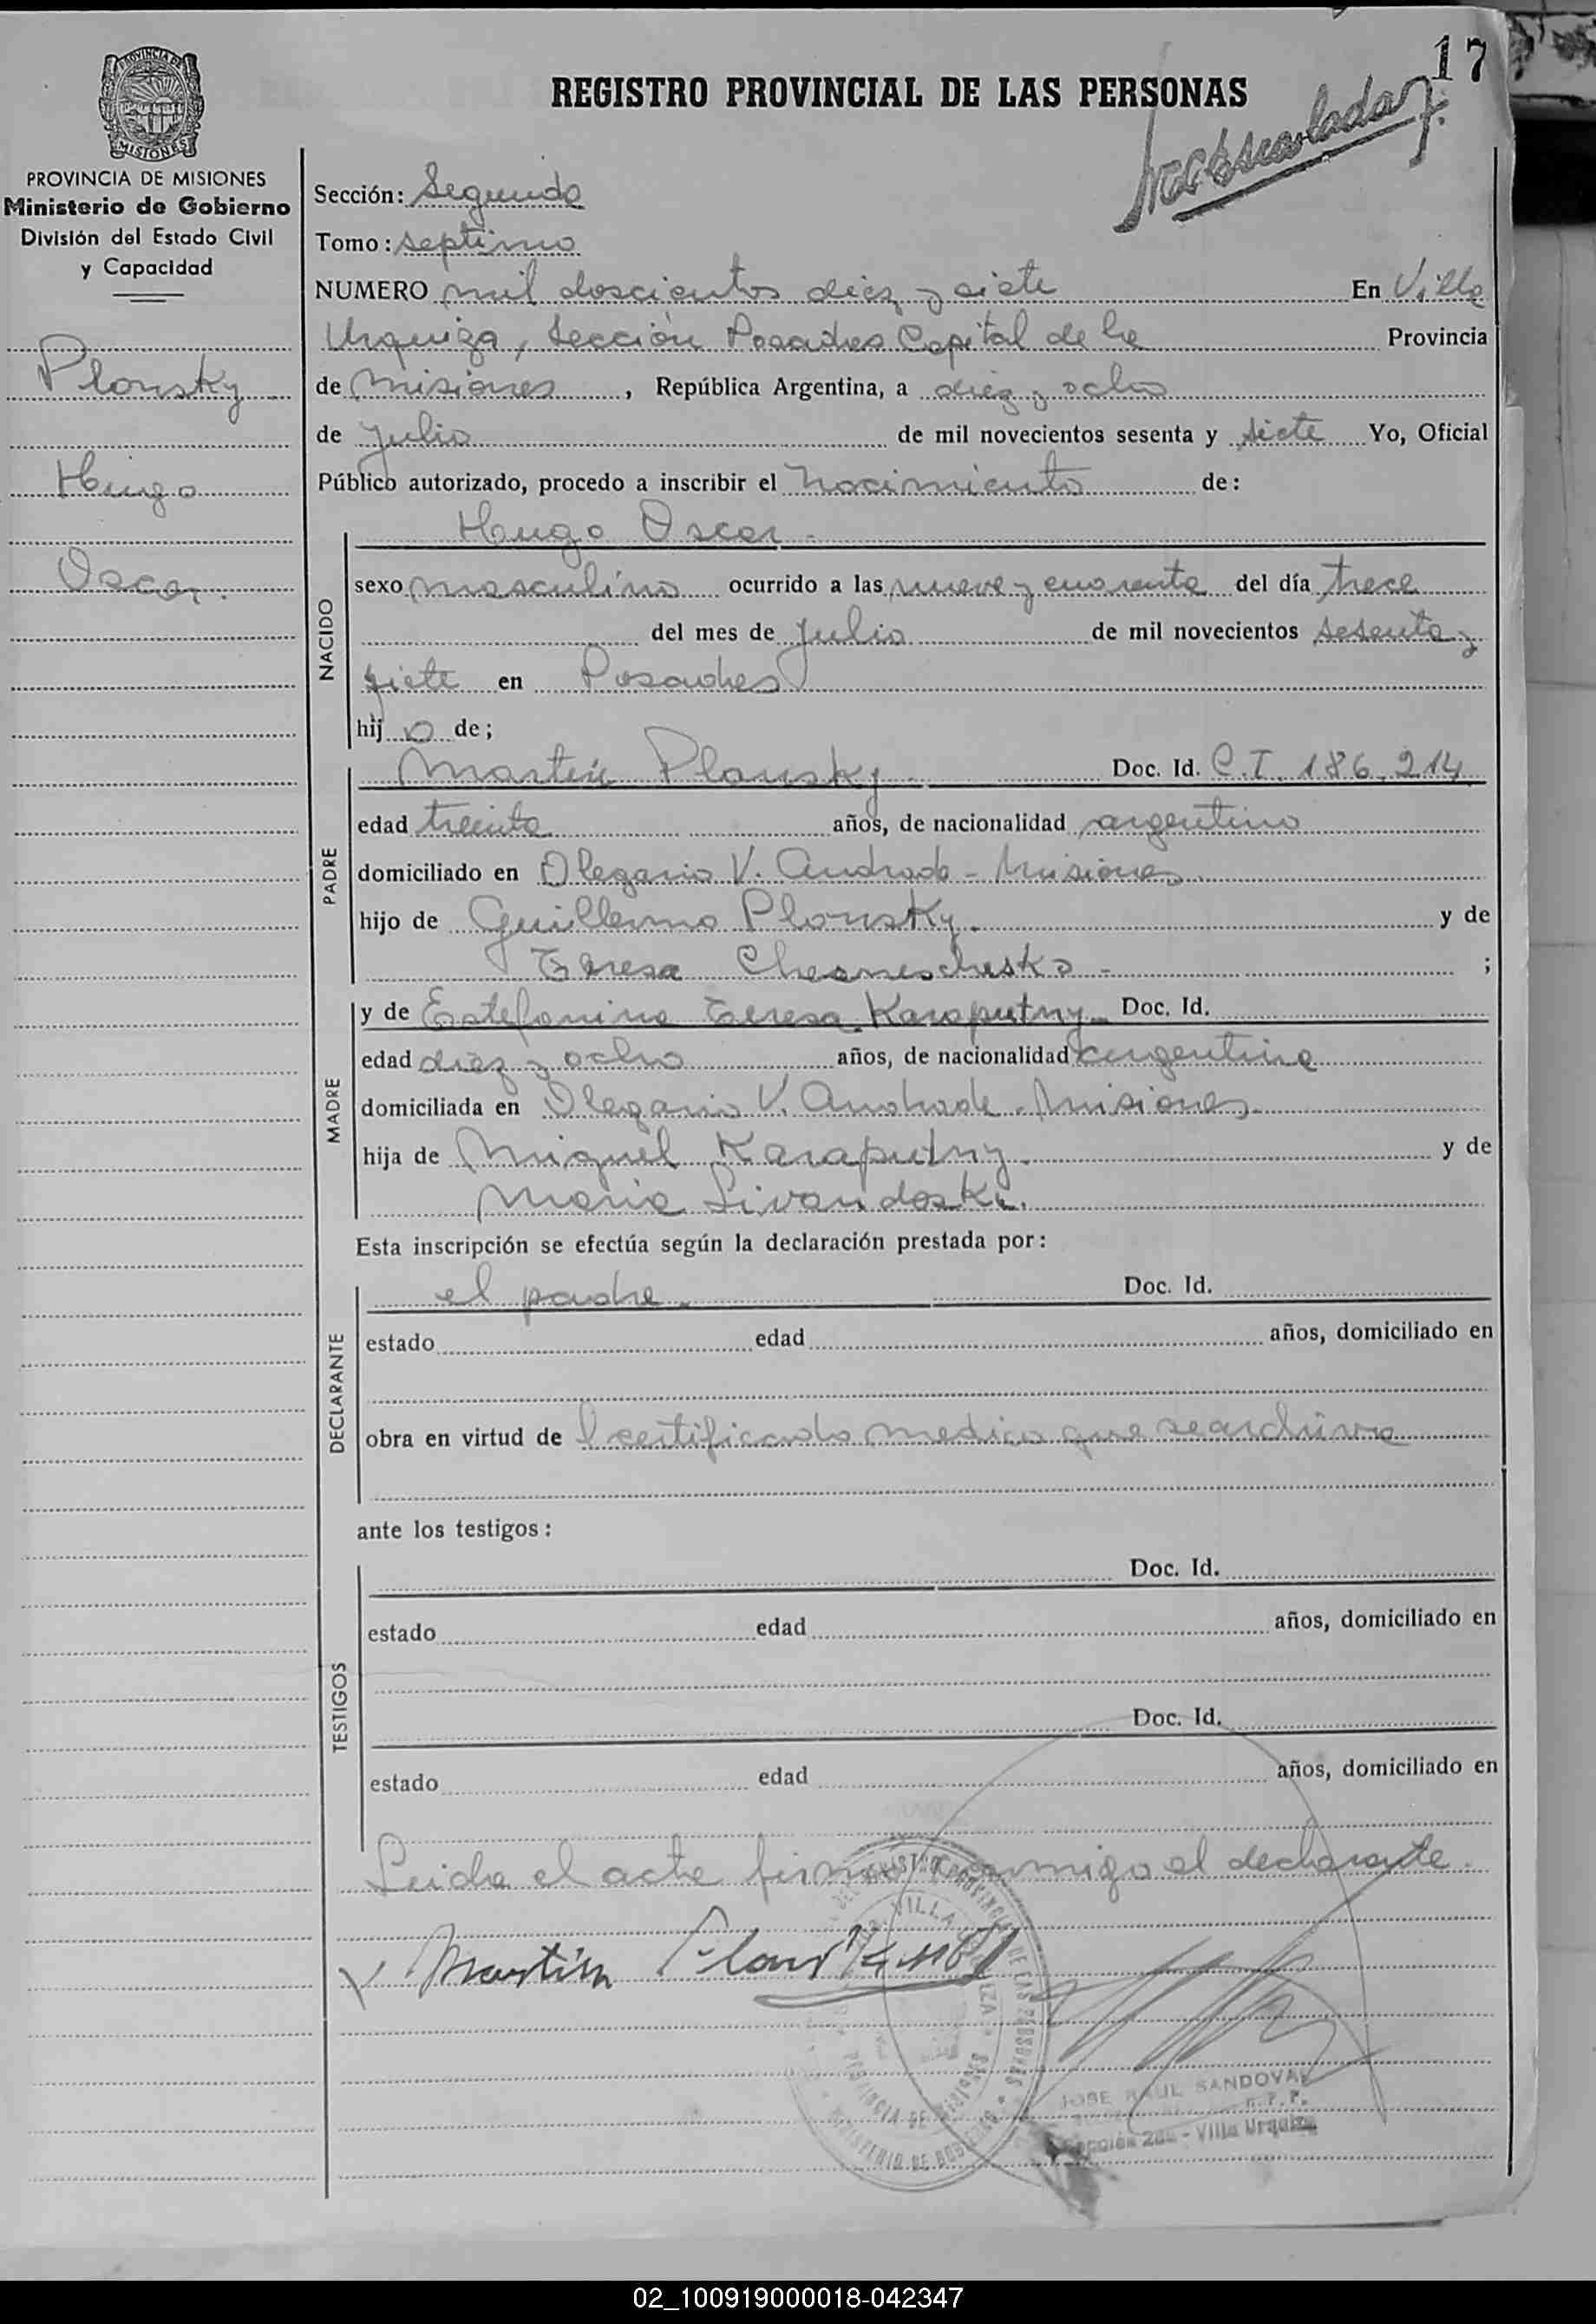 17
REGISTRO PROVINCIAL DE LAS PERSONAS
PROVINCIA DE MISIONES
MISIONES
PROVINCIA DE MISIONES
Ministerio de Gobierno
División del Estado Civil
y Capacidad
Plonsky
Hugo
Oscar.
Sección: Segunda
Tomo: septimo
NUMERO mil doscientos diez y siete En Villa
Urquiza, Sección Posadas Capital de la Provincia
de Misiones, República Argentina, a diez y ocho
de Julio de mil novecientos sesenta y siete Yo, Oficial
Público autorizado, procedo a inscribir el nacimiento de:
Hugo Oscar.
NACIDO
sexo masculino ocurrido a las nueve y cuarenta del día trece
del mes de Julio de mil novecientos sesenta y
siete en Posadas
hijo de;
PADRE
Martin Plonsky Doc. Id. C.I. 186.214
edad treinta años, de nacionalidad argentino
domiciliado en Olegario V. Andrade - Misiones
hijo de Guillermo Plonsky. y de
Teresa ;
MADRE
y de Estefanina Teresa Karaputny Doc. Id.
edad diez y ocho años, de nacionalidad argentina
domiciliada en Olegario V. Andrade - Misiones
hija de Miguel Karaputny. y de
Maria
Esta inscripción se efectúa según la declaración prestada por:
DECLARANTE
el padre. Doc. Id.
estado edad años, domiciliado en
obra en virtud de l certificado medico que se archiva
ante los testigos:
TESTIGOS
Doc. Id.
estado edad años, domiciliado en
Doc. Id.
estado edad años, domiciliado en
Leida el acta firma conmigo el declarante.
Martin
JOSE RAUL SANDOVAL
Sección 2da - Villa Urquiza
02_100919000018-042347